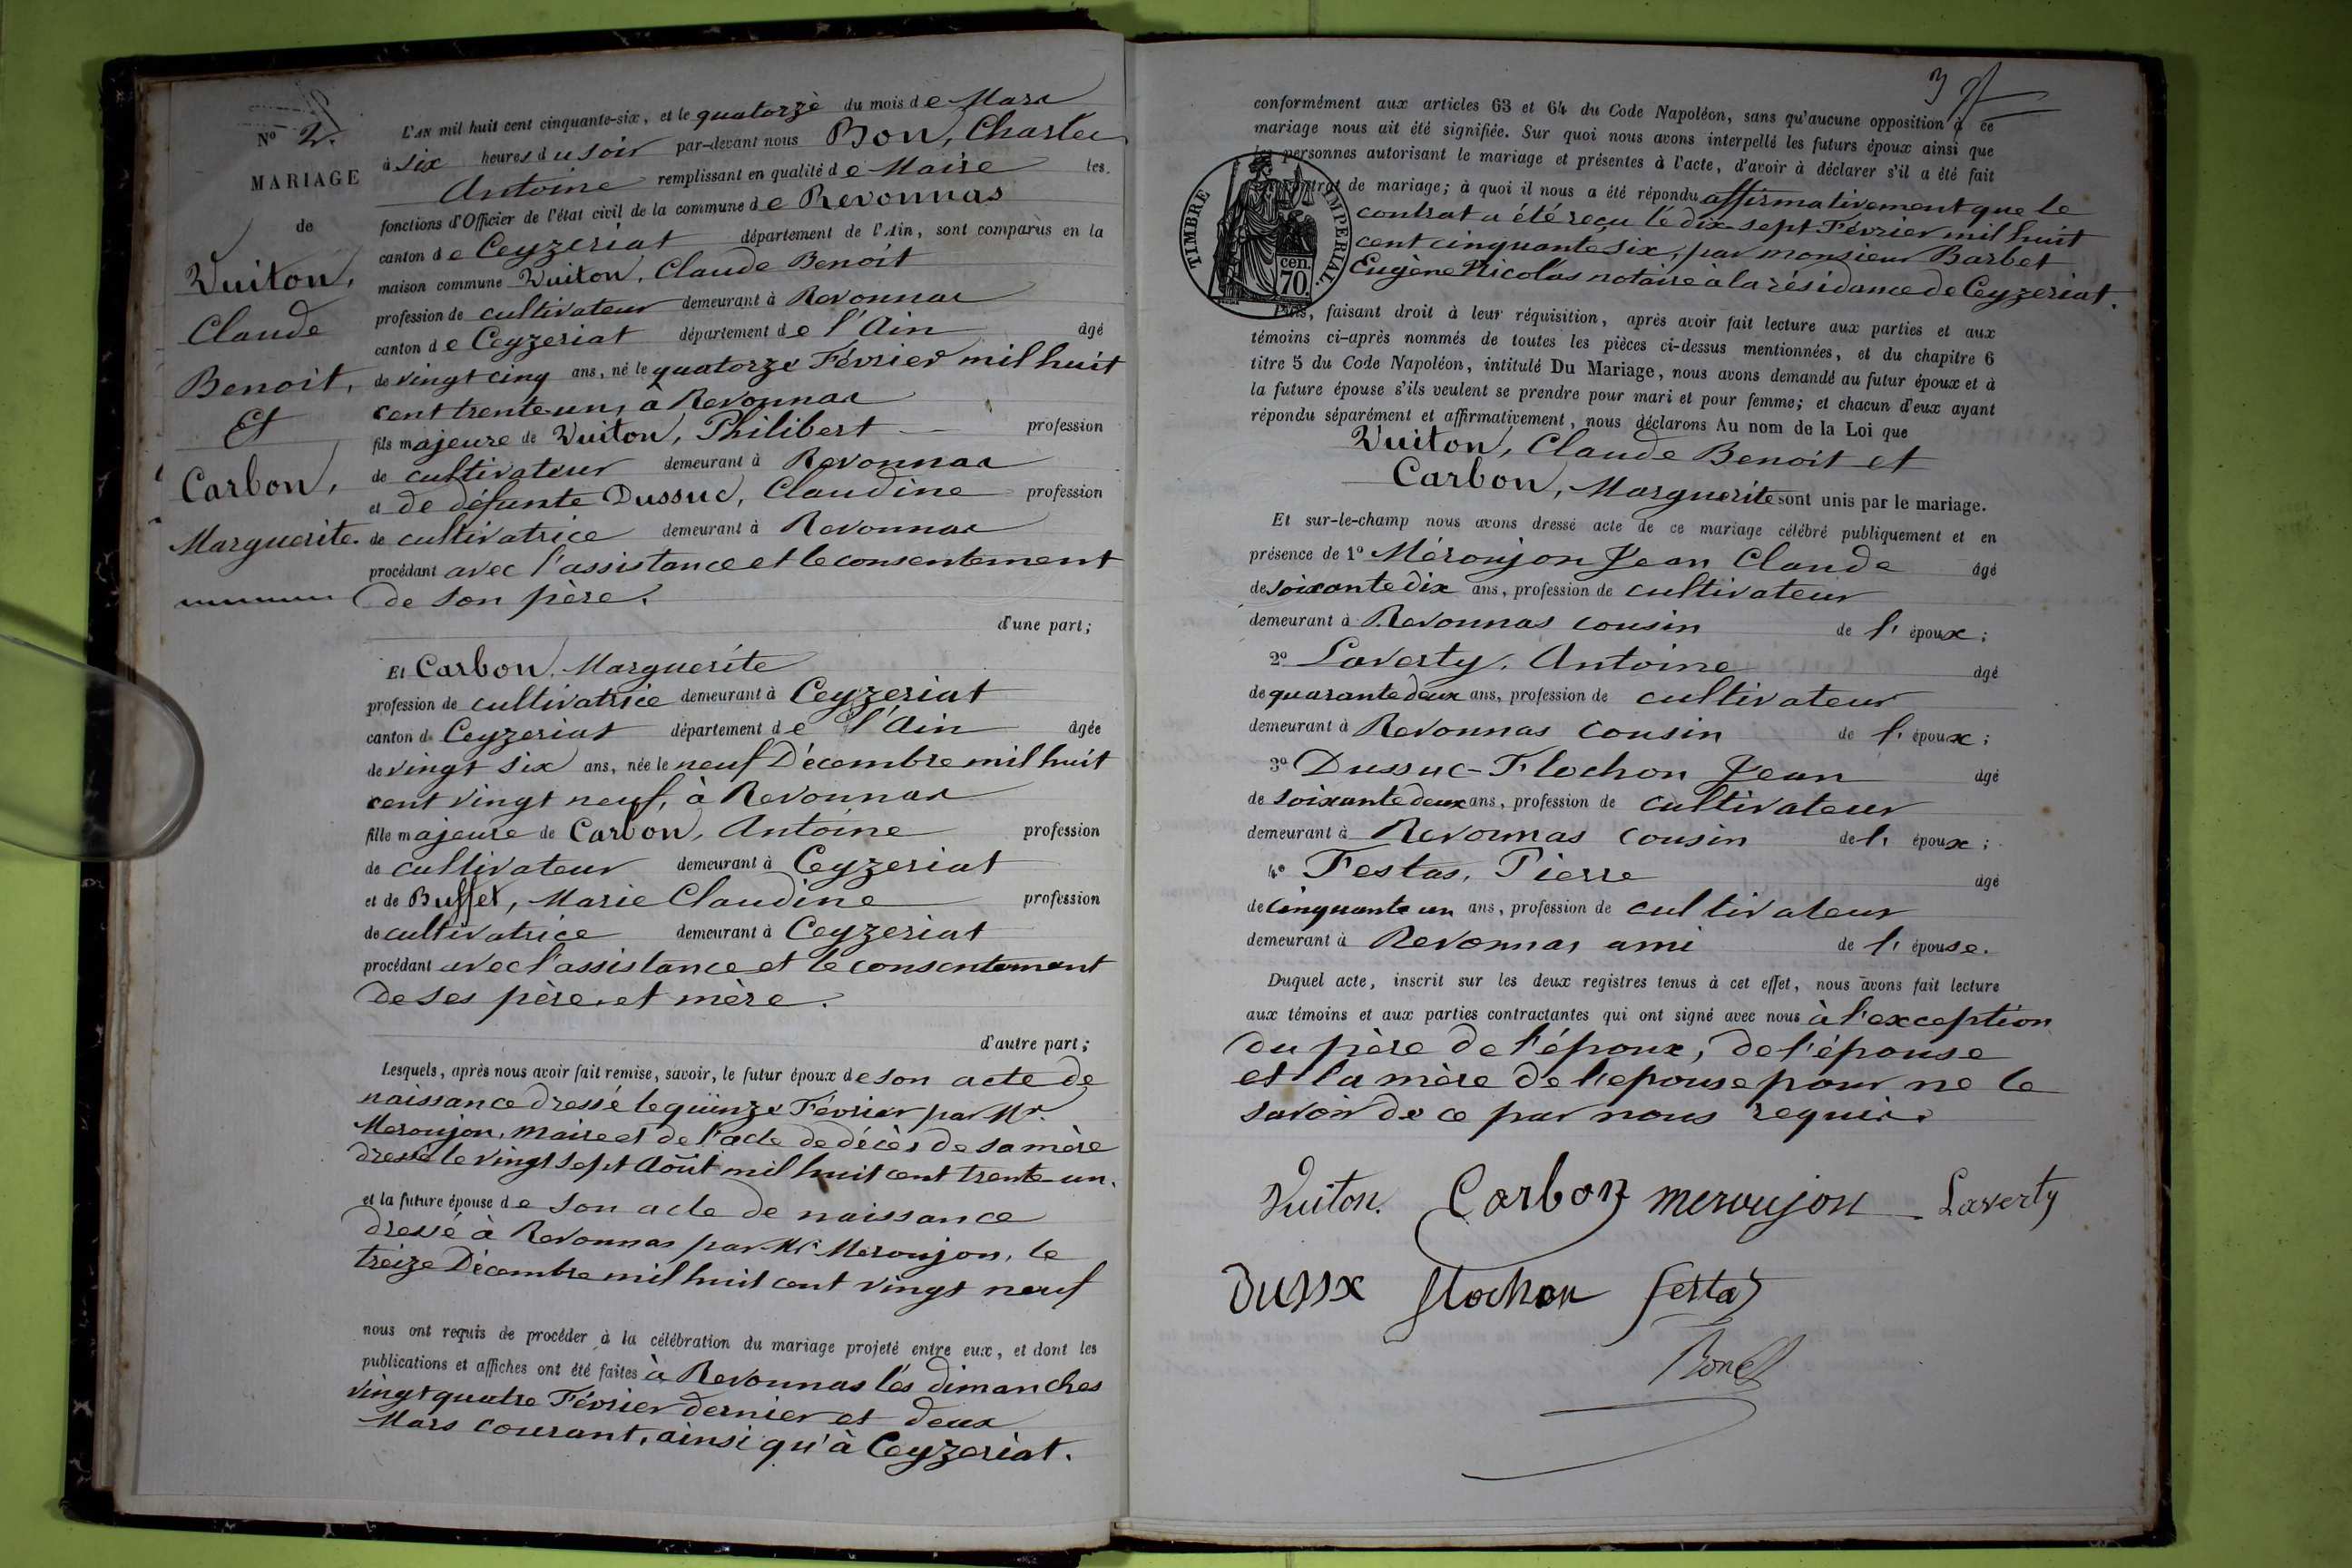 N° 2.
MARIAGE
de
Vuiton,
Claude
Benoit,
Et
Carbon,
Marguerite.
L'AN mil huit cent cinquante-six, et le quatorze du mois de Mars
à six heures du soir par-devant nous Bon, Charles
Antoine remplissant en qualité de Maire les
fonctions d'Officier de l'état civil de la commune de Revonnas
canton de Ceyzeriat département de l'Ain, sont comparus en la
maison commune Vuiton, Claude Benoit
profession de cultivateur demeurant à Revonnas
canton de Ceyzeriat département de l'Ain âgé
de vingt cinq ans, né le quatorze Février mil huit
cent trente un, à Revonnas
fils majeure de Vuiton, Philibert profession
de cultivateur demeurant à Revonnas
et de défunte Dussuc, Claudine profession
de cultivatrice demeurant à Revonnas
procédant avec l'assistance et le consentement
de son père.
d'une part;
Et Carbon, Marguerite
profession de cultivatrice demeurant à Ceyzeriat
canton de Ceyzeriat département de l'Ain âgée
de vingt six ans, née le neuf Décembre mil huit
cent vingt neuf, à Revonnas
fille majeure de Carbon, Antoine profession
de cultivateur demeurant à Ceyzeriat
et de Buffet, Marie Claudine profession
de cultivatrice demeurant à Ceyzeriat
procédant avec l'assistance et le consentement
de ses père et mère.
d'autre part;
Lesquels, après nous avoir fait remise, savoir, le futur époux de son acte de
naissance dressé le quinze Février par Mr.
Meroujon, maire et de l'acte de décès de sa mère
dressé le vingt sept Août mil huit cent trente-un.
et la future épouse de son acte de naissance
dressé à Revonnas par Mr Meroujon, le
treize Décembre mil huit cent vingt neuf
nous ont requis de procéder à la célébration du mariage projeté entre eux, et dont les
publications et affiches ont été faites à Revonnas les dimanches
vingt quatre Février dernier et deux
Mars courant, ainsi qu'à Ceyzeriat.
3
conformément aux articles 63 et 64 du Code Napoléon, sans qu'aucune opposition à ce
mariage nous ait été signifiée. Sur quoi nous avons interpellé les futurs époux ainsi que
les personnes autorisant le mariage et présentes à l'acte, d'avoir à déclarer s'il a été fait
contrat de mariage; à quoi il nous a été répondu affirmativement que le
contrat a été reçu le dix-sept Février mil huit
cent cinquante six, par monsieur Barbet
Eugène Nicolas notaire à la résidance de Ceyzeriat.
TIMBRE IMPERIAL.
70 cen.
faisant droit à leur réquisition, après avoir fait lecture aux parties et aux
témoins ci-après nommés de toutes les pièces ci-dessus mentionnées, et du chapitre 6
titre 5 du Code Napoléon, intitulé Du Mariage, nous avons demandé au futur époux et à
la future épouse s'ils veulent se prendre pour mari et pour femme; et chacun d'eux ayant
répondu séparément et affirmativement, nous déclarons Au nom de la Loi que
Vuiton, Claude Benoit et
Carbon, Marguerite sont unis par le mariage.
Et sur-le-champ nous avons dressé acte de ce mariage célébré publiquement et en
présence de 1° Méroujon Jean Claude âgé
de soixante dix ans, profession de cultivateur
demeurant à Revonnas cousin de l' époux;
2° Laverty, Antoine âgé
de quarante deux ans, profession de cultivateur
demeurant à Revonnas cousin de l' époux;
3° Dussuc-Flochon Jean âgé
de soixante deux ans, profession de cultivateur
demeurant à Revonnas cousin de l' époux;
4° Festas, Pierre âgé
de cinquante un ans, profession de cultivateur
demeurant à Revonnas ami de l' épouse.
Duquel acte, inscrit sur les deux registres tenus à cet effet, nous avons fait lecture
aux témoins et aux parties contractantes qui ont signé avec nous à l'exception
du père de l'époux, de l'épouse
et la mère de l'epouse pour ne le
savoir de ce par nous requis.
Vuiton. Carbon meroujon Laverty
Dussx flochon festas
Bon